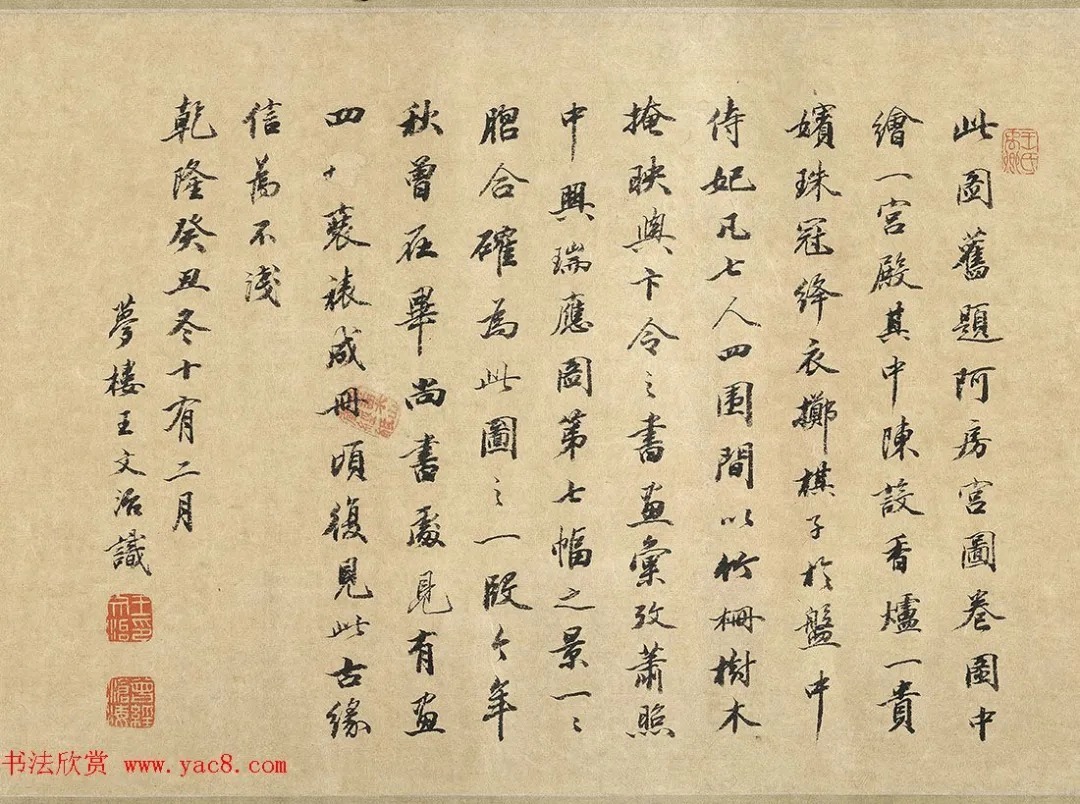 此圖舊題阿房宮圖卷圖中
繪一宮殿其中陳設香爐一貴
嬪珠冠絳衣擲棋子於盤中
侍妃凡七人四圍間以竹柵樹木
掩映與卞令之書畫彙攷蕭照
中興瑞應圖第七幅之景一〻
脗合確為此圖之一段今年
秋曾在畢尚書處見有畫
四十裘裱成冊頃復見此古緣
信為不淺
乾隆癸丑冬十有二月
夢樓王文治識
王文治印
曾經滄海
书法欣赏 www.yac8.com